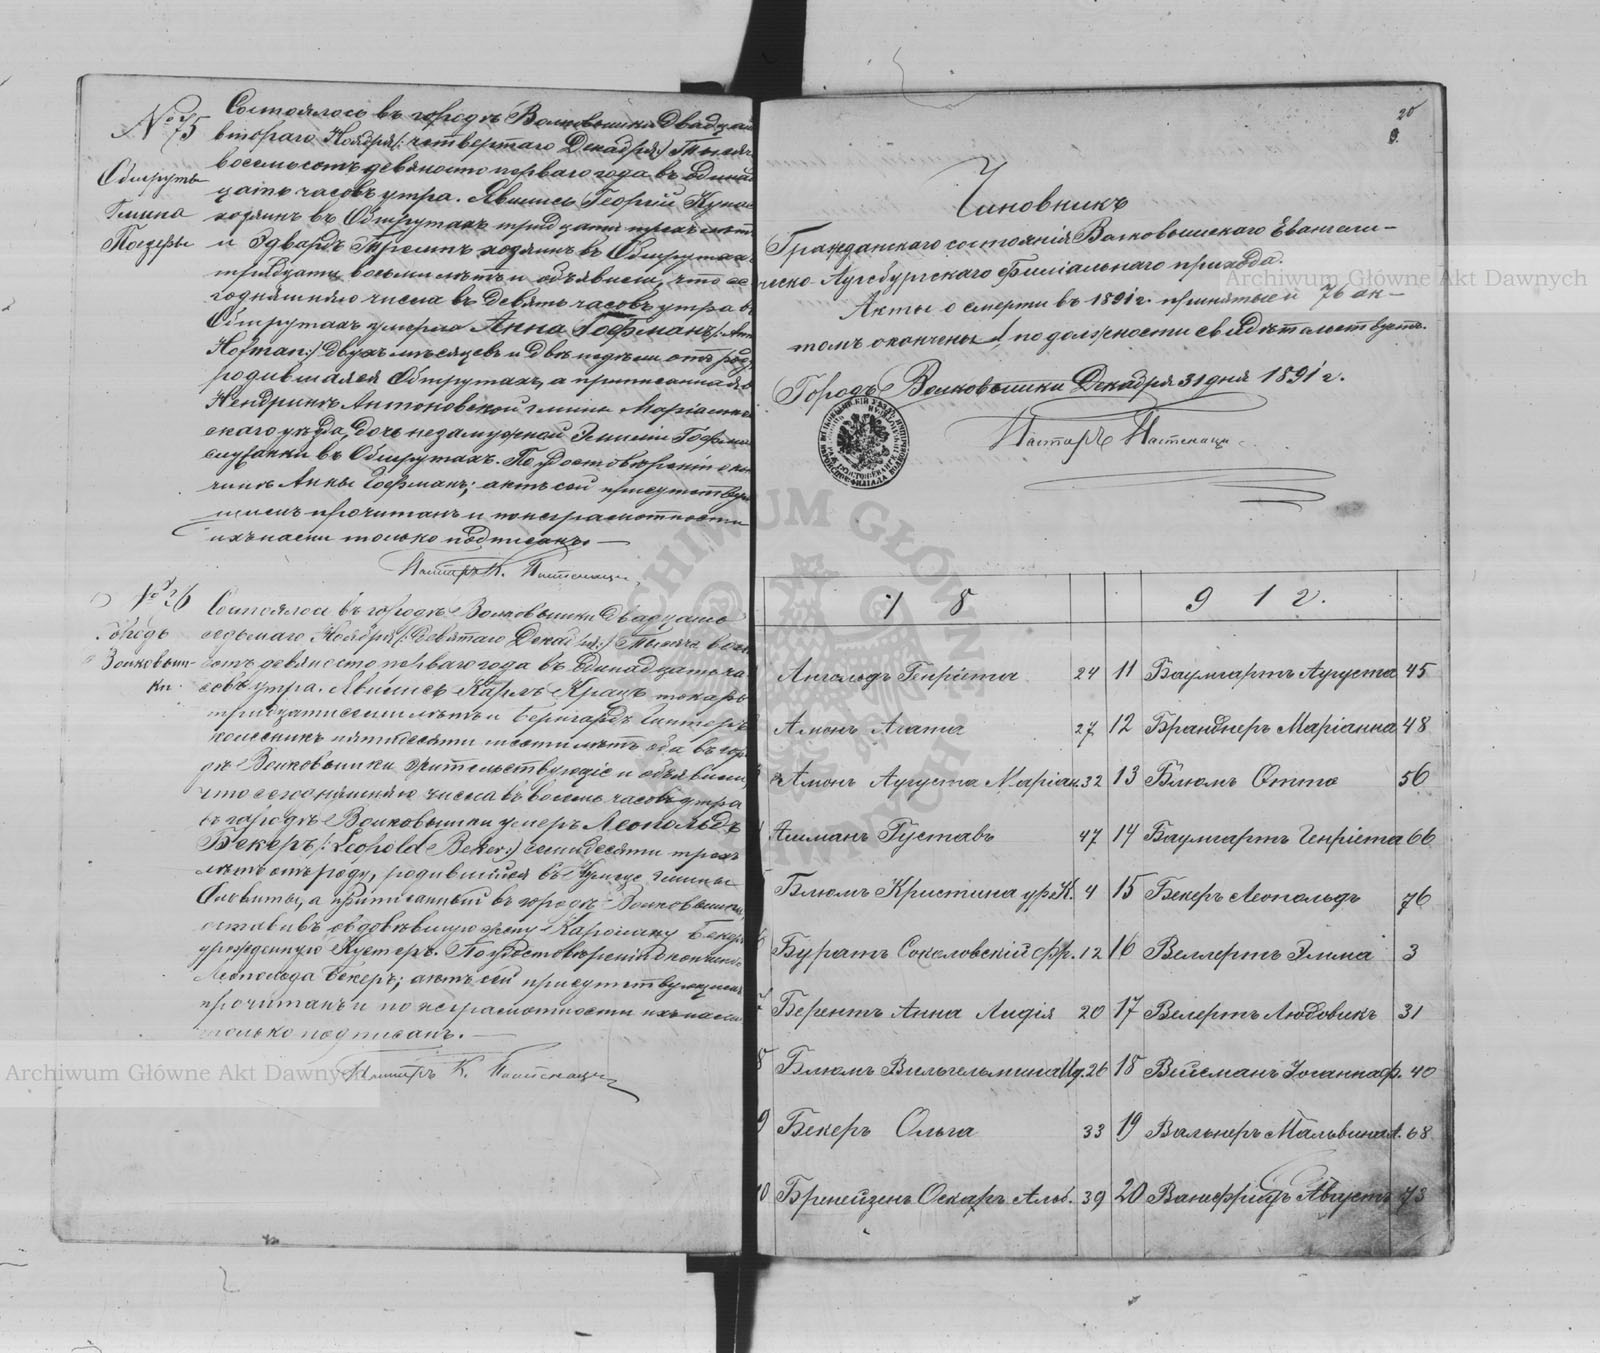 № 75
Обшруты
Гмина
Поезеры
Состоялось въ городѣ Волковышки Двадцать
втораго Ноября /: четвертаго Декабря :/ Тысяча
восемьсотъ девяносто перваго года въ Одинад
цать часовъ утра. Явились Георгій
хозяинъ въ Обшрутахъ тридцати трехъ лѣтъ
и Эдвардъ хозяинъ въ Обшрутахъ
тридцати восьми лѣтъ и объявили, что се
годняшняго числа въ девять часовъ утра въ
Обшрутахъ умерла Анна Гофманъ /: Anna
Hofman :/ двухъ мѣсяцевъ и двѣ недѣли отъ роду
родившаяся Обшрутахъ, а приписанная въ
Антоновской гмины Маріамполь
скаго уѣзда, дочь незамужной Эмиліи Гофманъ
служанки въ Обшрутахъ. По удостовѣреніи о кон
чинѣ Анны Гофманъ; актъ сей присутствую
щимъ прочитанъ и по неграмотности
ихъ нами только подписанъ. —
Пастаръ К.
№ 76
Городъ
Волковыш-
ки.
Состоялось въ городѣ Волковышки Двадцать
седьмаго Ноября /: Девятаго Декабря :/ Тысяча восемь
сотъ девяносто перваго года въ Одинадцать ча
совъ утра. Явились Карлъ Крацъ токарь
тридцати семи лѣтъ и Бернгардъ
колесникъ пятидесяти шести лѣтъ оба въ горо
дѣ Волковышки жительствующіе и объявили,
что сегодняшняго числа въ восемь часовъ утра
въ городѣ Волковышки умеръ Леопольдъ
Бекеръ /: Leopold Beker :/ семидесяти трехъ
лѣтъ отъ роду, родившійся въ гмины
а приписанный въ городѣ Волковышки,
оставивъ овдовѣвшую жену Каролину Бекеръ
урожденную Кистеръ. По удостовѣреніи о кончинѣ
Леопольда Бекеръ; актъ сей присутствующимъ
прочитанъ и по неграмотности ихъ нами
только подписанъ. —
Пастаръ К.
20
9.
Чиновникъ
Гражданскаго состоянія Волковышскаго Евангели-
ческо-Аугсбургскаго Филіальнаго прихода.
Акты о смерти въ 1891 г. принятые и 76 ак-
томъ окончены, по должности свидѣтельствуетъ.
Городъ Волковышки Декабря 31 дня 1891 г.
Пастаръ
1 8 9 1 г.
Ангольдъ Генріета 24 11 Баумгартъ Аугуста 45
Амонъ Агата 27 12 Бранднеръ Маріанна 48
Амонъ Аугуста Маріан. 32 13 Блюмъ Отто 56
Ашманъ Густавъ 47 14 Баумгартъ Генріета 66
Блюмъ Кристина ур. К. 4 15 Бекеръ Леопольдъ 76
6 Буратъ Соколовскій Фр. 12 16 Веллертъ Эмма 3
7 Берентъ Анна Лидія 20 17 Велертъ Людовикъ 31
8 Блюмъ Вильгельмина Ид. 26 18 Вейсманъ Іоганна ф. 40
9 Бекеръ Ольга 33 19 Вальнеръ Мальвина А. 68
10 Бренейзенъ Оскаръ Альб. 39 20 Ванефридъ Августъ 73
Archiwum Główne Akt Dawnych
Archiwum Główne Akt Dawnych
ARCHIWUM GŁÓWNE AKT DAWNYCH